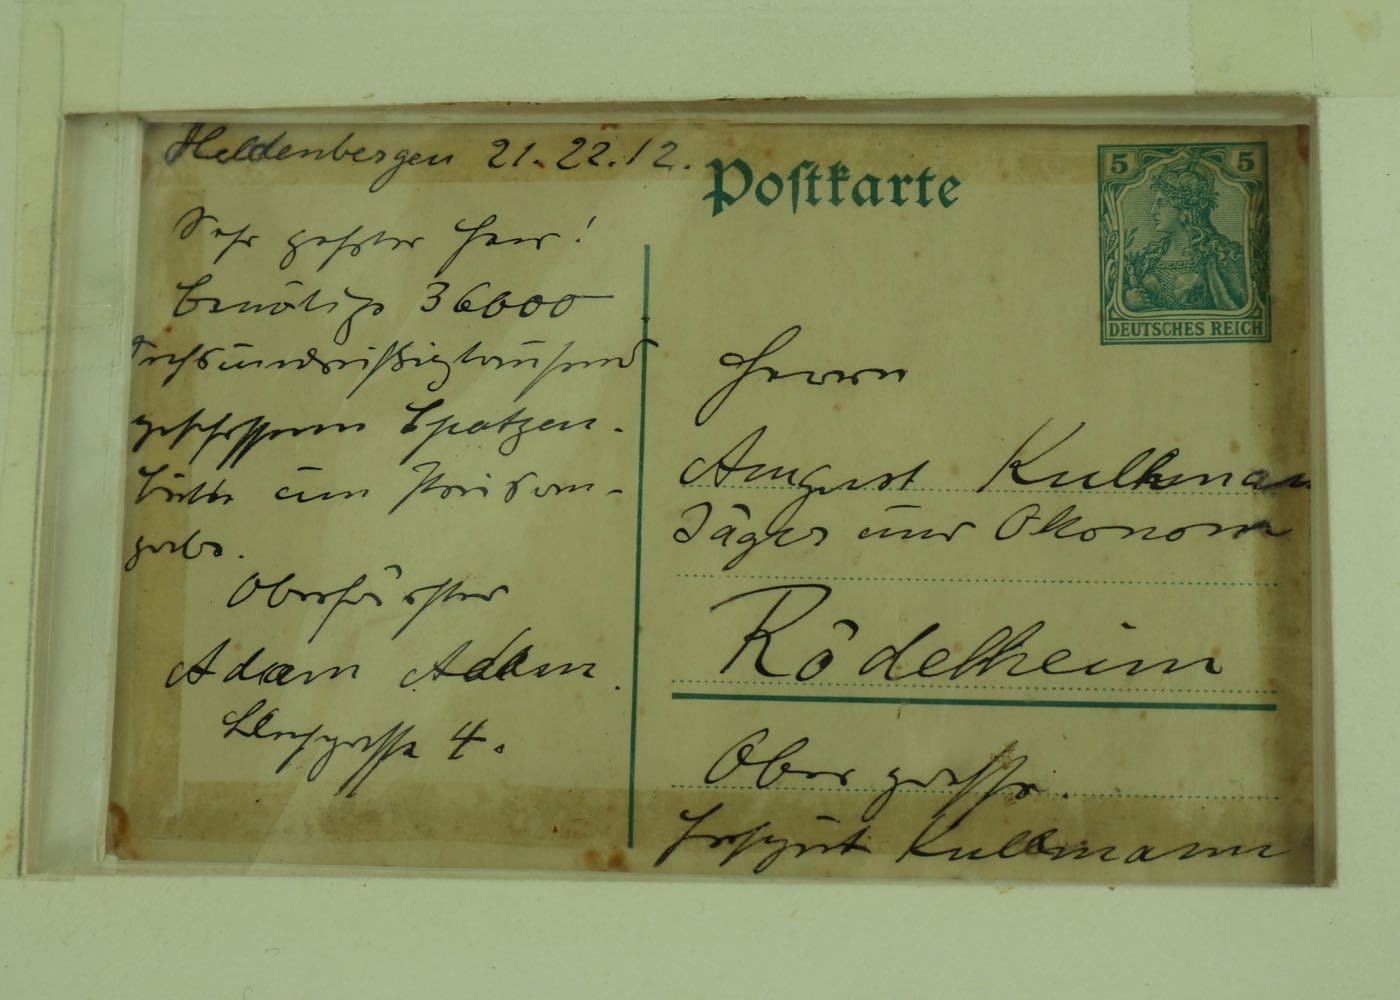 Heldenbergen 21.22.12.
Sehr geehrter Herr!
Benötige 36000
sechsunddreißigtausend
geschossene Spatzen.
Bitte um Preisan-
gabe.
Oberförster
Adam Adam.
4.
Postkarte
5 5
DEUTSCHES REICH
Herrn
August Kullmann
Jäger und Ökonom
Rödelheim
Obergasse.
Hofgut Kullmann